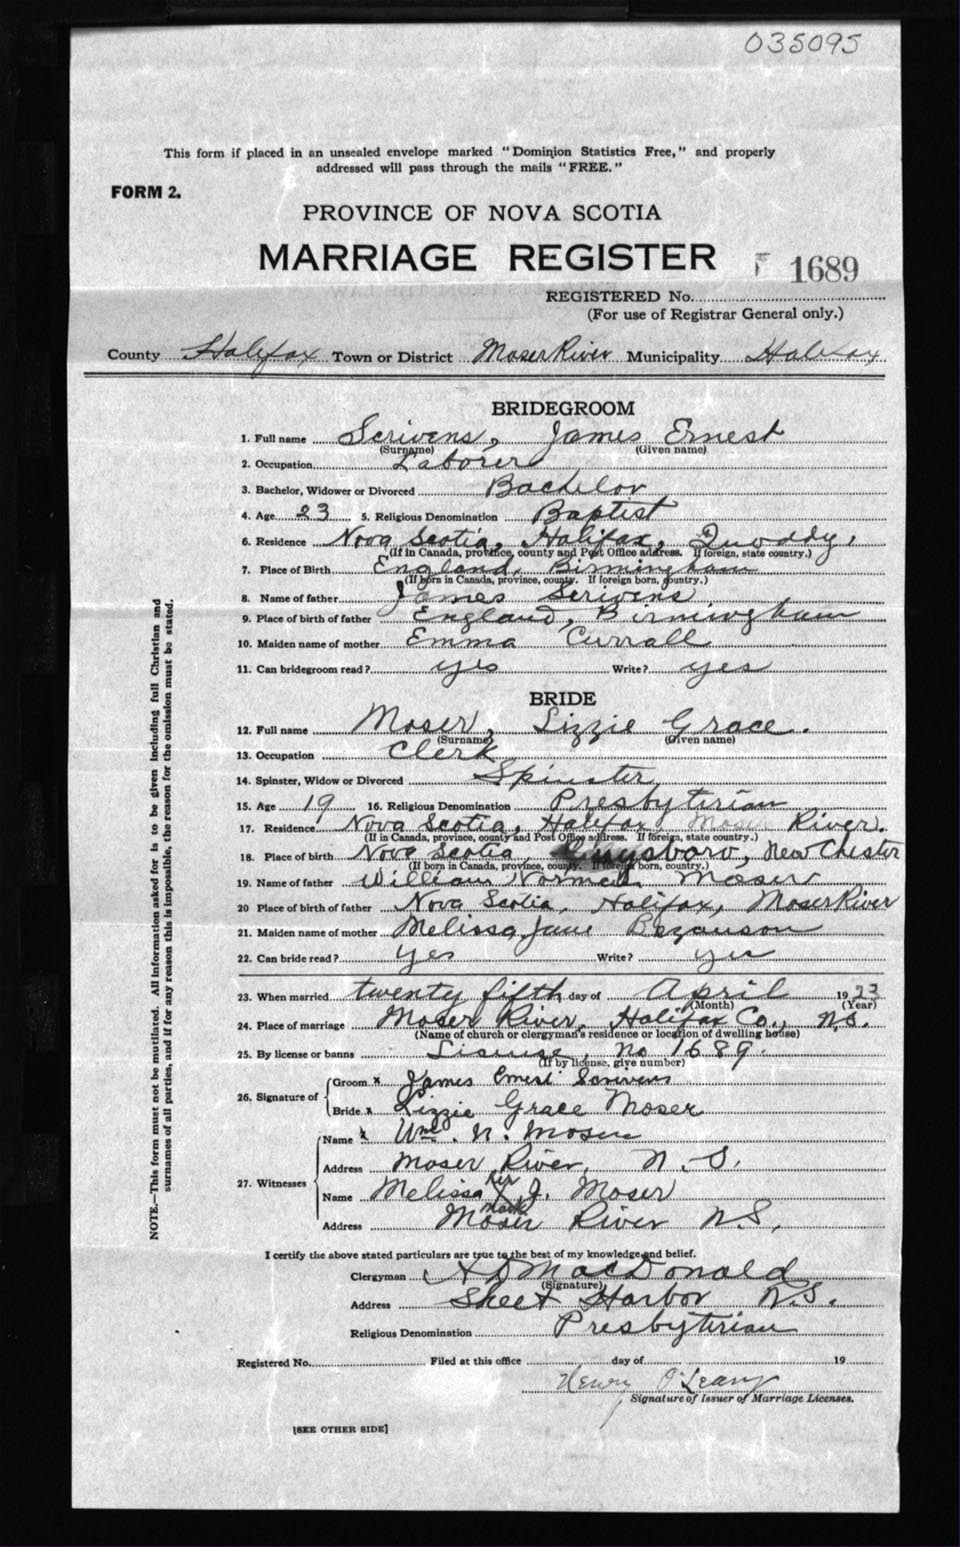 035095
This form if placed in an unsealed envelope marked "Dominion Statistics Free," and properly
addressed will pass through the mails "FREE."
FORM 2.
PROVINCE OF NOVA SCOTIA
MARRIAGE REGISTER 1689
REGISTERED No.
(For use of Registrar General only.)
County Halifax Town or District Moser River Municipality Halifax
BRIDEGROOM
1. Full name Scrivens, James Ernest
(Surname) (Given name)
2. Occupation Laborer
3. Bachelor, Widower or Divorced Bachelor
4. Age 23 5. Religious Denomination Baptist
6. Residence Nova Scotia, Halifax, Quoddy,
(If in Canada, province, county and Post Office address. If foreign, state country.)
7. Place of Birth England, Birmingham
(If born in Canada, province, county. If foreign born, country.)
8. Name of father James Scrivens
9. Place of birth of father England, Birmingham
10. Maiden name of mother Emma Currall
11. Can bridegroom read? yes Write? yes
BRIDE
12. Full name Moser, Lizzie Grace.
(Surname) (Given name)
13. Occupation Clerk
14. Spinster, Widow or Divorced Spinster
15. Age 19 16. Religious Denomination Presbyterian
17. Residence Nova Scotia, Halifax, Moser River.
(If in Canada, province, county and Post Office address. If foreign, state country.)
18. Place of birth Nova Scotia, Guysboro, New Chester
(If born in Canada, province, county. If foreign born, country.)
19. Name of father William Norman Moser
20 Place of birth of father Nova Scotia, Halifax, Moser River
21. Maiden name of mother Melissa Jane Bezanson
22. Can bride read? Yes Write? yes
23. When married twenty fifth day of April 1923
(Month) (Year)
24. Place of marriage Moser River, Halifax Co., N.S.
(Name of church or clergyman's residence or location of dwelling house)
25. By license or banns License, No 1689.
(If by license, give number)
26. Signature of
Groom x James Ernest Scrivens
Bride x Lizzie Grace Moser
27. Witnesses
Name x Wm. N. Moser
Address Moser River, N.S.
Name Melissa her x mark J. Moser
Address Moser River N.S.
I certify the above stated particulars are true to the best of my knowledge and belief.
Clergyman A D MacDonald
(Signature)
Address Sheet Harbor N.S.
Religious Denomination Presbyterian
Registered No. Filed at this office day of 19
Henry O'Leary
Signature of Issuer of Marriage Licenses.
[SEE OTHER SIDE]
NOTE.—This form must not be mutilated. All information asked for is to be given including full Christian and
surnames of all parties, and if for any reason this is impossible, the reason for the omission must be stated.